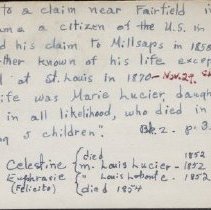 to a claim near Fairfield i
ama a citizen of the U.S. in
d his claim to Millsaps in 1850
ther known of his life excep
l at St. Louis in 1870 - Nov. 29
ife was Marie Lucier, daugh
in all likelihood, who died in
g 5 children." Bk. 2. p. 3
Celestine { died 1852
Euphrasie { m. Louis Lucier - 1852
(Felicite) { " Louis Labonte - 1852
died 1854